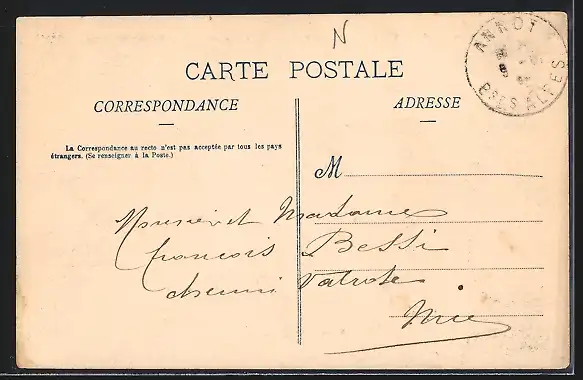 N
ANNOT
BSES ALPES
CARTE POSTALE
CORRESPONDANCE
ADRESSE
La Correspondance au recto n'est pas acceptée par tous les pays
étrangers. (Se renseigner à la Poste.)
M
Monsieur et Madame
François Bessi
chemin
Nice